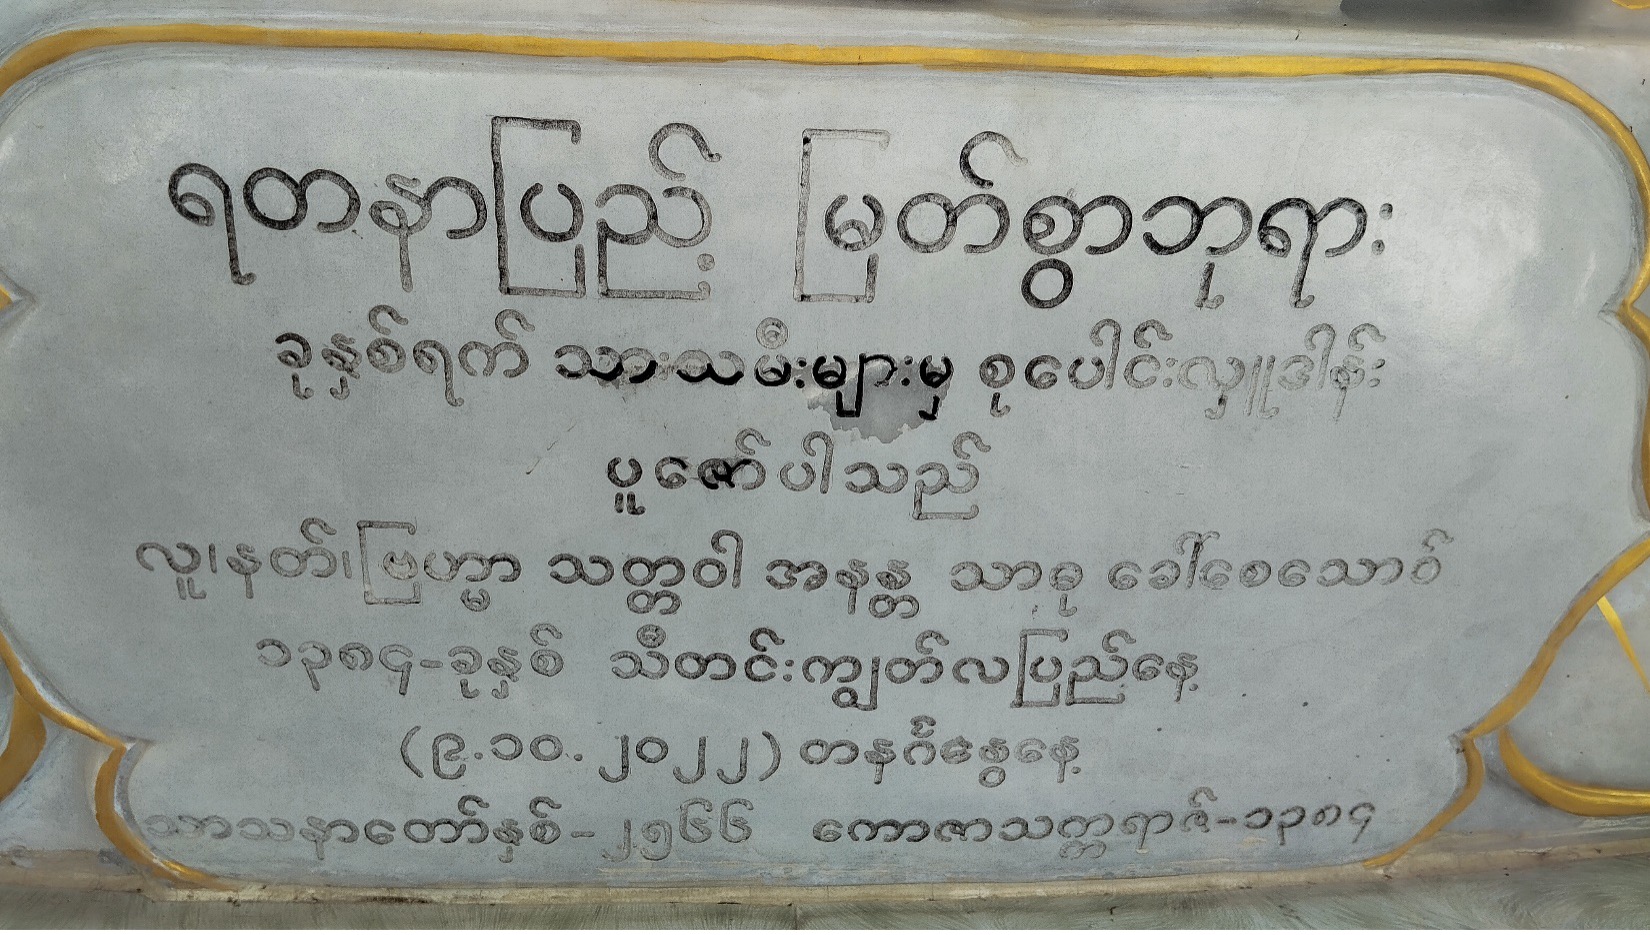 ရတနာပြည့် မြတ်စွာဘုရား
ခုနှစ်ရက် သားသမီးများမှ စုပေါင်းလှူဒါန်း
ပူဇော်ပါသည်
လူ၊နတ်၊ဗြဟ္မာ သတ္တဝါ အနန္တ သာဓု ခေါ်စေသောဝ်
၁၃၈၄-ခုနှစ် သီတင်းကျွတ်လပြည့်နေ့
(၉.၁၀.၂၀၂၂) တနင်္ဂနွေနေ့
သာသနာတော်နှစ်-၂၅၆၆ ကောဇာသက္ကရာဇ်-၁၃၈၄